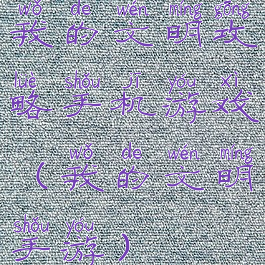 wǒ de wén míng gōng
我的文明攻
lüè shǒu jī yóu xì
略手机游戏
wǒ de wén míng
(我的文明
shǒu yóu
手游)